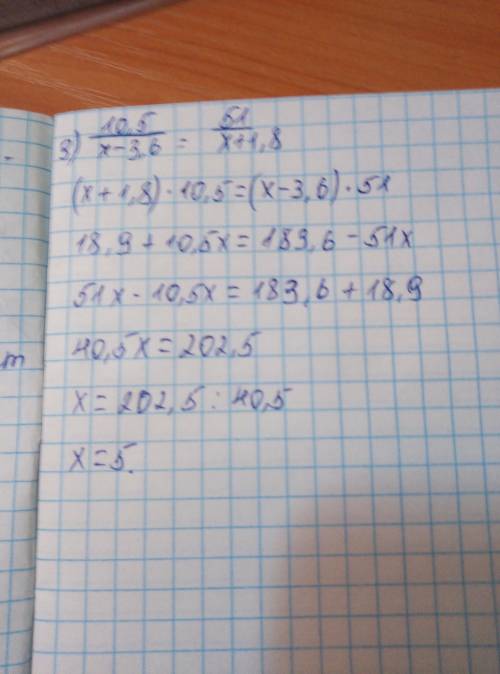 3) 10,5/(x-3,6) = 51/(x+1,8)
(x+1,8)·10,5=(x-3,6)·51
18,9+10,5x=183,6-51x
51x-10,5x=183,6+18,9
40,5x=202,5
x=202,5:40,5
x=5.
m